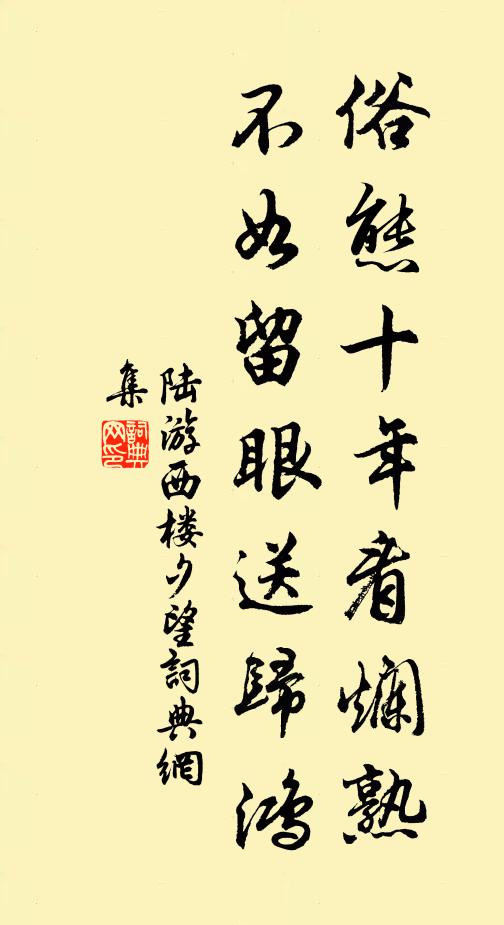 俗態十年看爛熟
不如留眼送歸鴻
陆游西楼夕望詞典網
集
詞典网印